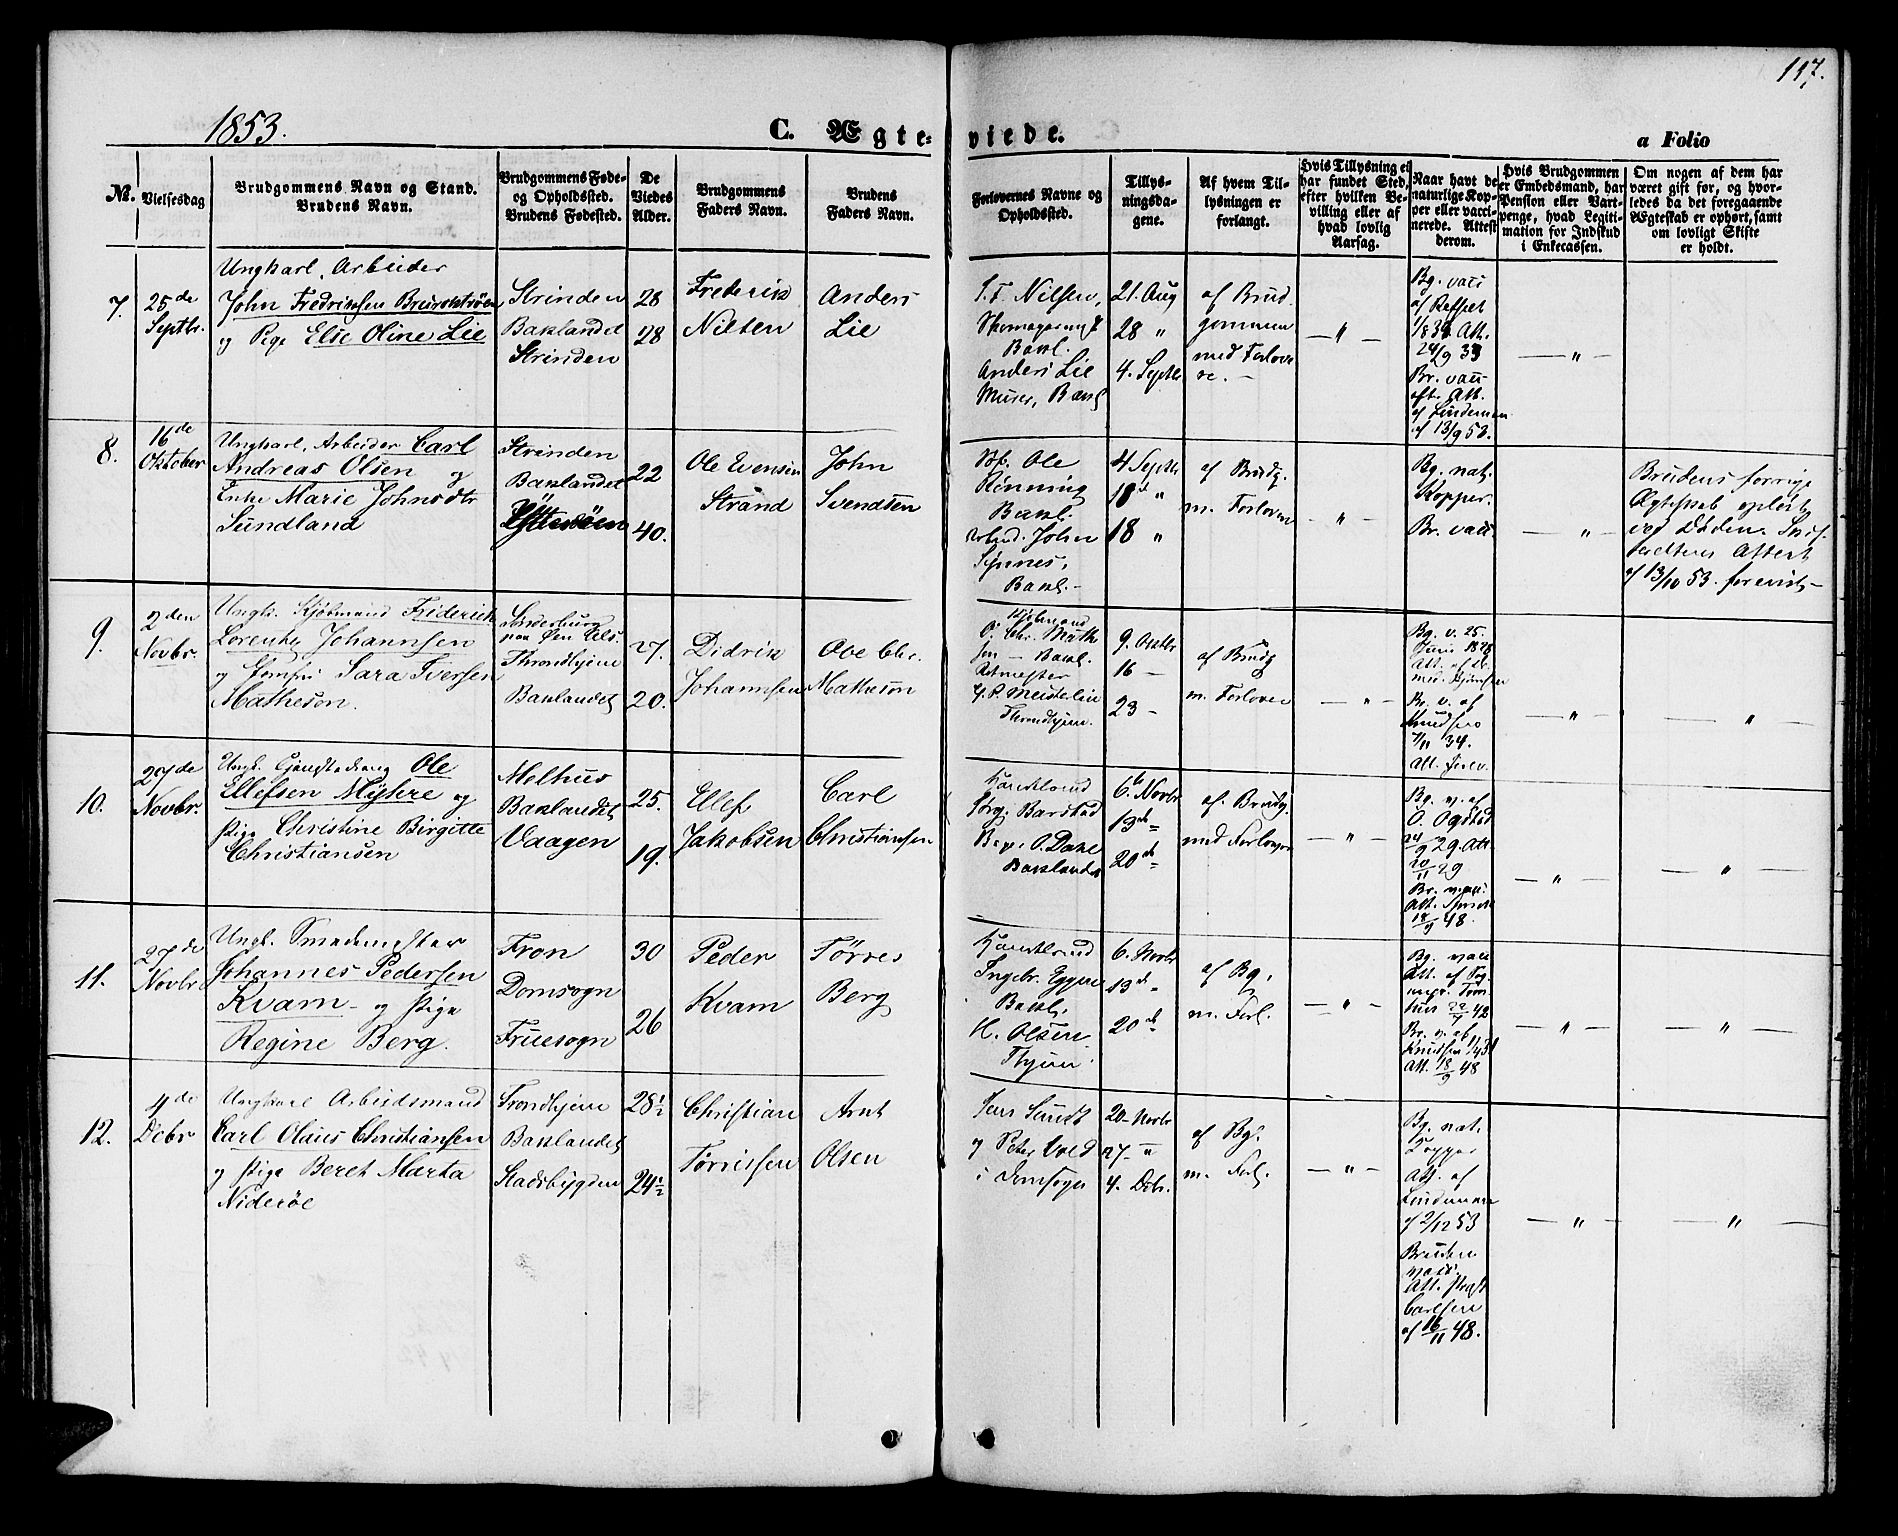 117.
1853.
C. Ægte-
viede.
a Folio
No.
Vielsesdag
Brudgommens Navn og Stand.
Brudens Navn.
Brudgommens Føde-
og Opholdssted.
Brudens Fødested.
De
Viedes
Alder.
Brudgommens
Faders Navn.
Brudens
Faders Navn.
Forlovernes Navne og
Opholdssted.
Tillys-
ningsda-
gene.
Af hvem Til-
lysningen er
forlangt.
Hvis Tillysning ei
har fundet Sted,
efter hvilken Be-
villing eller af
hvad lovlig
Aarsag.
Naar havt de
naturlige Kop-
per eller vacci-
nerede. Attest
derom.
Hvis Brudgommen
er Embedsmand, har
Pension eller Vart-
penge, hvad Legiti-
mation for Indskud
i Enkecassen.
Om nogen af dem har
været gift før, og hvor-
ledes da det foregaaende
Ægteskab er ophørt, samt
om lovligt Skifte
er holdt.
7.
25de
Septbr.
Ungkarl, Arbeider
John Fredriksen
og Pige Elise Oline Lie
Strinden
Baklandet
Strinden
28
28
Frederik
Nilsen
Anders
Lie
Nilsen,
Bakl.
Anders Lie
Murer, Bakl
21. Aug
28 "
4. Septbr
af Brud
gommen
med Forlove
re. -
— " —
Bg. vacc
Br. vacc
eft. Att.
af Lindeman
af 13/9 53.
— " —
8.
16de
Oktober
Ungkarl, Arbeider Carl
Andreas Olsen og
Enke Marie Johnsdtr
Sundland
Strinden
Baklandet
Ytterøen
22
40.
Ole Evensen
Strand
John
Svendsen
Ole
Rønning
Bakl.
John
Bakl. -
4 Septbr
18d "
18 "
af Brudg.
m. Forlover
— " —
Bg. nat.
Kopper.
Br. vacc.
— " —
Brudens forrige
Ægteskab opløst
ved Døden.
Attest
af 13/10 53. forevist -
9.
2den
Novbr.
Ungk. Kjøbmand Friderich
Lorentz Johannsen
og Jomfru Sara Iversen
Matheson.
Sønderburg
paa Øen Als.
Throndhjem
Baklandet
27.
20.
Didrik
Johannsen
Aoe Chr.
Matheson
Kjøbmand
O. Chr. Math
sen — Bakl.
Throndhjem.
9. Oktbr
16 —
23 —
af Brudg
m. Forlover
— " —
Bg. v. 25.
Br. v. af
Knudsen
7/11 34.
— " —
— " —
10.
27de
Novbr.
Ungk. Ole
Ellefsen Myhre og
Pige Christine Birgitte
Christiansen
Melhus
Baklandet
Vaagen
25.
19.
Ellef
Jakobsen
Carl
Christiansen
Baklandet
6te Novbr
13de
20de
af Brudg.
med Forlover
— " —
Bg. v. af
O. Ogstad
24/9 29. Att.
20/11 29
Br. vacc.
18/9 48.
— " —
— " —
11.
27de
Novbr.
Ungk. Smedemester
Johannes Pedersen
Kvam - og Pige
Regine Berg.
Fron
Domsogn
Fruesogn
30
26
Peder
Kvam
Tørres
Berg
Ingebr. Eggen
Bakl.
H. Olsen
Thjem.
6. Novbr
13d "
20d "
af Bg.
m. Forl.
— " —
Bg. vacc
Att. af
22/7 42
Br. v. af
Knudsen
Att. 18/9 48
— " —
— " —
12.
4de
Debr
Ungkarl Arbeidsmand
Carl Olaus Christiansen
og Pige Beret Marta
Niderøe
Trondhjem
Baklandet
Stadsbygden
28½
24½
Christian
Tørrissen
Arnt
Olsen
Jens Sundt
og Peter Vold
i Domsogn
20 Novbr
27 - "
4. Debr.
af Bg.
m. Forl.
— " —
Bg. nat.
Kopper
Att. af
Lindeman
af 2/12 53
Bruden
vacc.
Att. Præst
Carlsen
af 16/11 48.
— " —
— " —